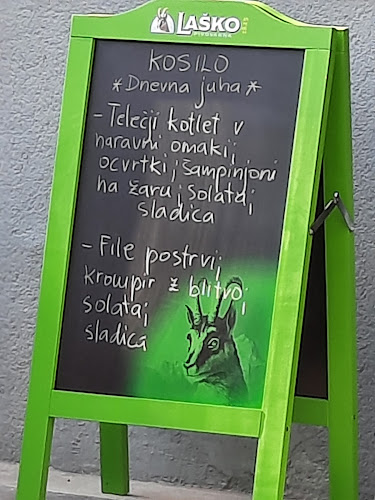 LAŠKO
PIVOVARNA
1825
KOSILO
*Dnevna juha*
- Telečji kotlet v
naravni omaki,
ocvrtki, šampinjoni
na žaru, solata,
sladica
- File postrvi,
krompir z blitvo,
solata,
sladica